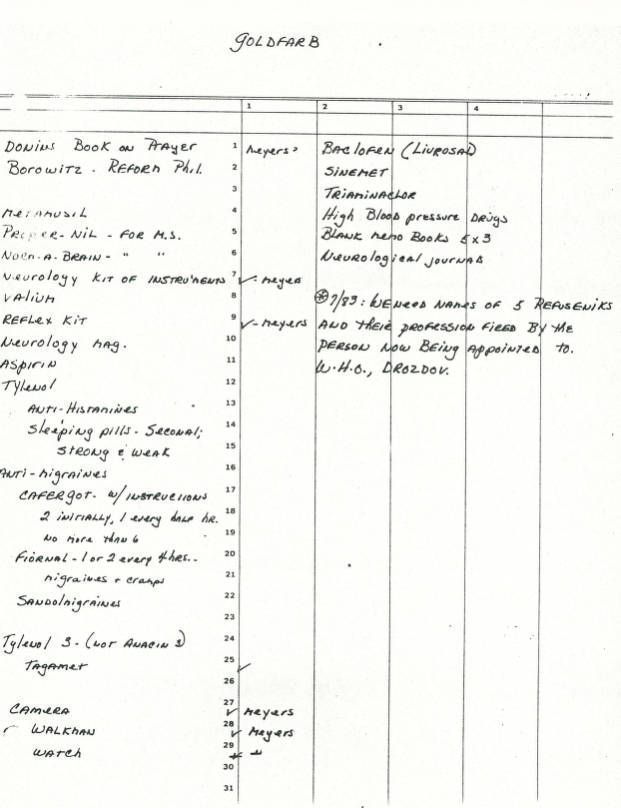 GOLDFARB
1 2 3 4
DONINS BOOK ON PRAYER 1 Meyers BACLOFEN (LIUROSAL)
BOROWITZ - REFORM PHIL. 2 SINEMET
3 TRIAMINACLOR
METAMUSIL 4 High Blood pressure DRUGS
- NIL - FOR M.S. 5 BLANK MEMO BOOKS 5 x 3
NORM-A-BRAIN - " " 6 NEUROLOGICAL JOURNALS
NEUROLOGY KIT OF INSTRUMENTS 7 ✓- Meyers
VALIUM 8 ⊛ 7/83: WE NEED NAMES OF 5 REFUSENIKS
REFLEX KIT 9 ✓- Meyers AND THEIR PROFESSION FIRED BY THE
NEUROLOGY MAG. 10 PERSON NOW BEING APPOINTED TO
ASPIRIN 11 W.H.O., DROZDOV.
TYLENOL 12
ANTI-HISTAMINES 13
SLEEPING PILLS - SECONAL; 14
STRONG & WEAK 15
ANTI-MIGRAINES 16
CAFERGOT - W/ INSTRUCTIONS 17
2 INITIALLY, 1 every HALF HR. 18
NO MORE THAN 6 19
FIORNAL - 1 or 2 every 4 HRS.. 20
MIGRAINES + CRAMPS 21
SANDOMIGRAINES 22
23
TYLENOL 3 - (NOT ANACIN 3) 24
TAGAMET 25 ✓
26
CAMERA 27 ✓ Meyers
WALKMAN 28 ✓ Meyers
WATCH 29 "
30
31